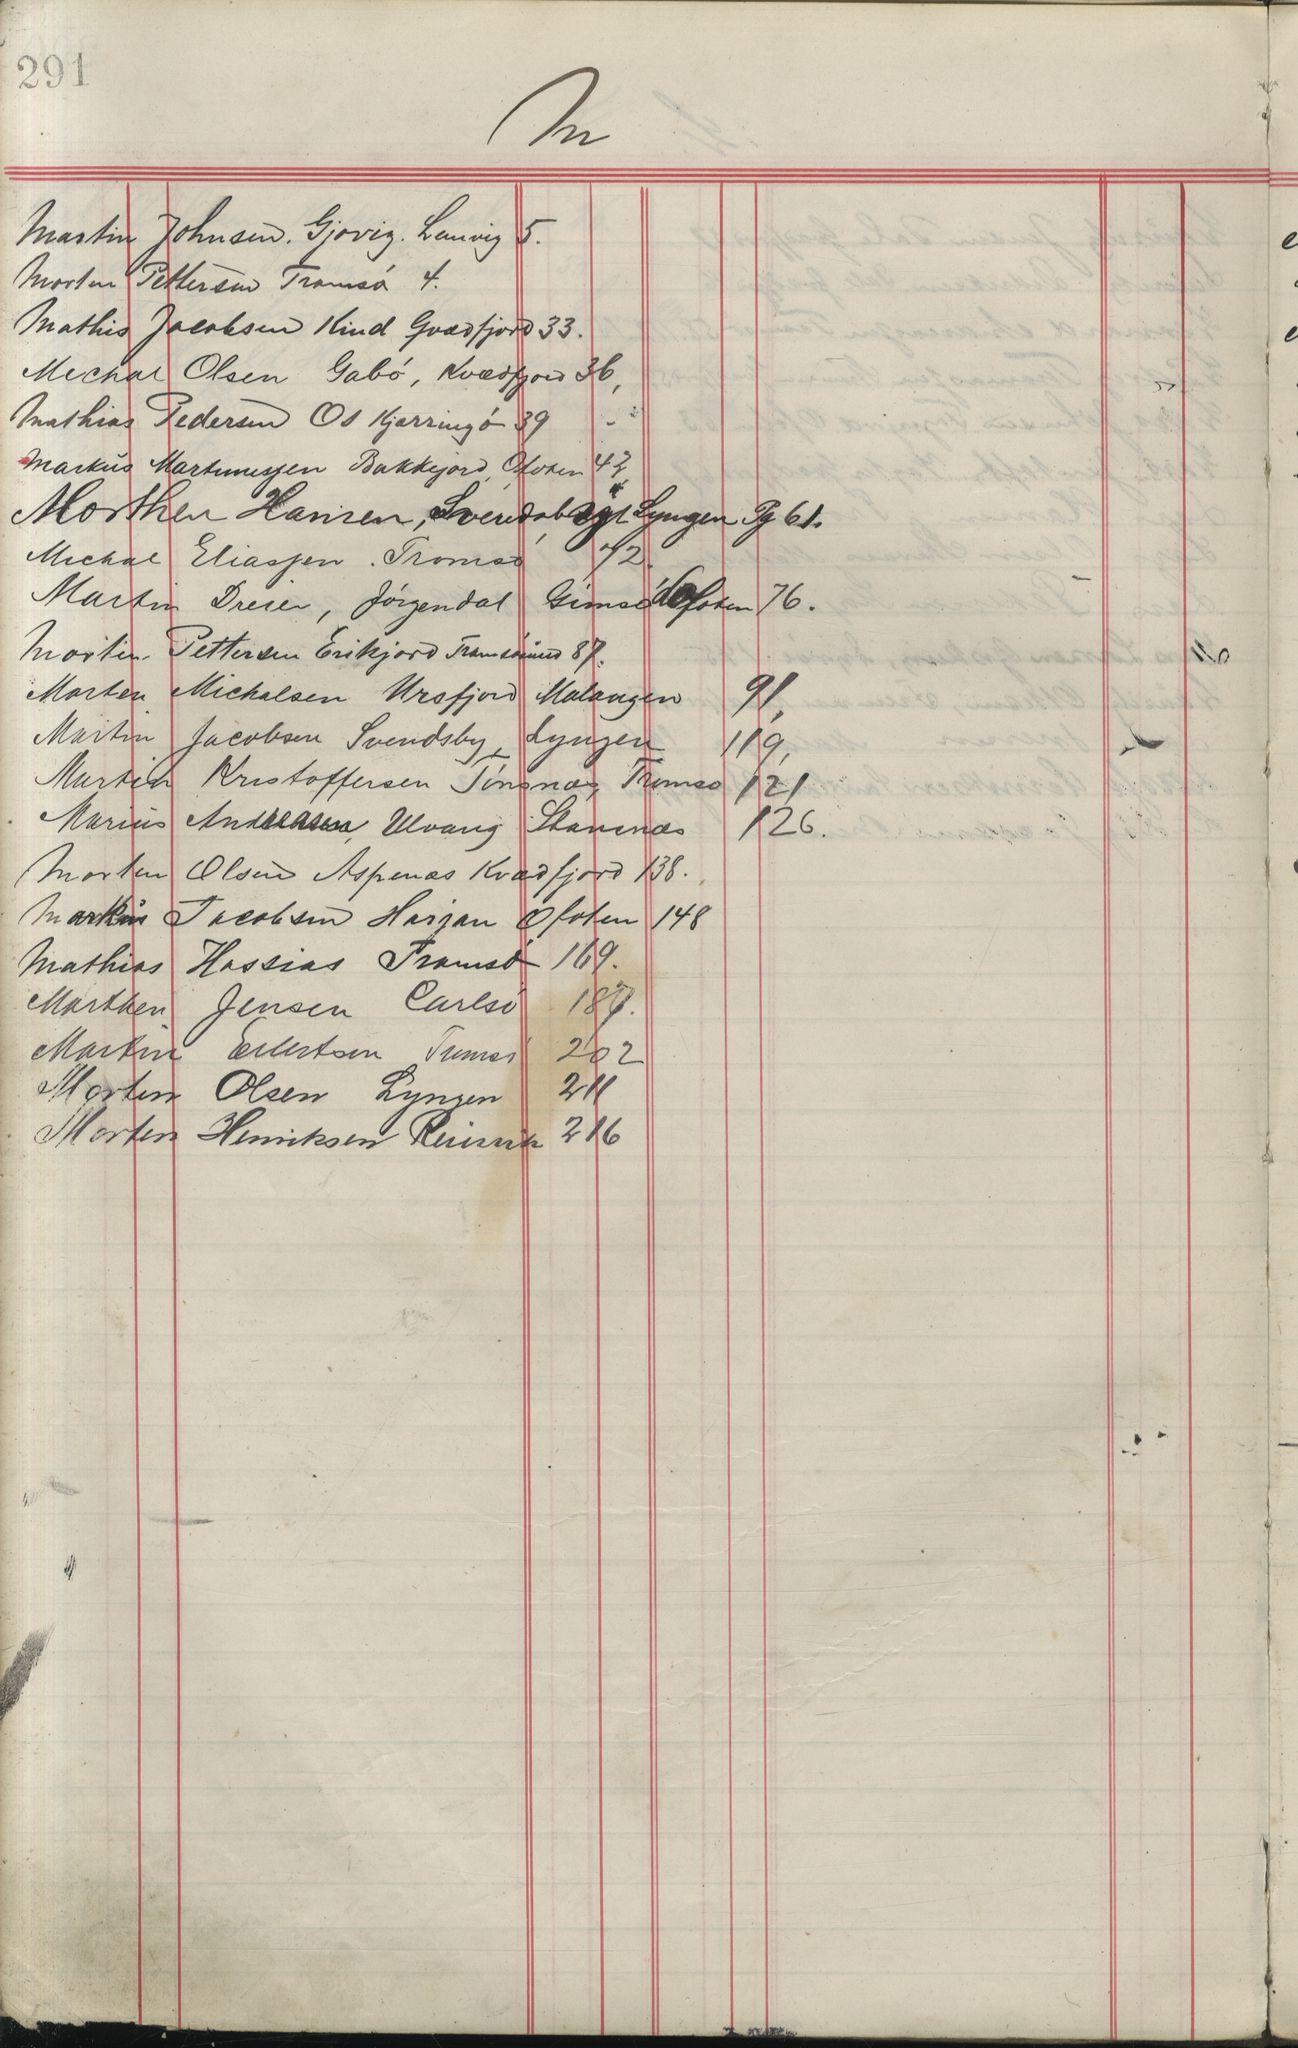 291
M
Martin Johnsen. Gjovig. Lenvig 5.
Morten Pettersen Tromsö 4.
Mathis Jacobsen Kind Gvædfjord 33.
Mechal Olsen Gabö, Kvædfjord 36,
Mathias Pedersen Os Kjærringö 39
Markus Martinussen Bakkejord, Ofoten 42
Morthen Hansen, Lyngen Pg 61.
Michal Eliassen. Tromsö 72.
Martin Dreier, Jörgendal Gimsö Lofoten 76.
Morten Pettersen Erikjord Tromsösund 87.
Morten Michalsen Ursfjord Malangen 91,
Martin Jacobsen Svendsby, Lyngen 119,
Martin Kristoffersen Tönsnæs, Tromsø 121
Marius Andreassen, Ulvang Stamnæs 126.
Morten Olsen Aspenæs Kvædfjord 138.
Markus Jacobsen Harjan Ofoten 148
Mathias Hassias Tromsö 169.
Marthen Jensen Carlsö 187.
Martin Eilertsen Tromsö 202
Morten Olsen Lyngen 211
Morten Henriksen Reinvik 216